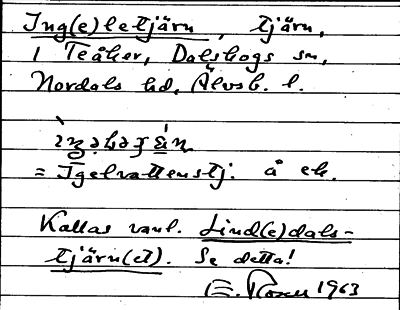 Ing(e)letjärn, tjärn,
i Teåker, Dalskogs sn,
Nordals hd, Älvsb. l.
= Igelvattenstj. å ek.
Kallas vanl. Lind(e)dals-
tjärn(et). Se detta!
E. 1963